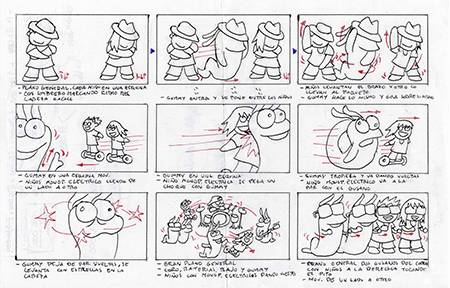 - PLANO GENERAL. CADA NIÑO EN UNA ESQUINA
CON SOMBRERO MOVIENDO RITMO POR
CADERA
- GUMMY ENTRA Y SE PONE ENTRE LOS NIÑOS
- NIÑOS LEVANTAN EL BRAZO Y OTRO
LLEVAN AL
- GUMMY HACE LO MISMO Y
- GUMMY EN UNA ESQUINA MOV.
- NIÑOS MONOP. ELECTRICO LLEGAN DE
UN LADO A OTRO
- GUMMY EN UNA ESQUINA
- NIÑO MONOP. ELECTRICO SE PEGA UN
CHOQUE CON GUMMY
- GUMMY TROPIEZA Y DA VUELTAS
- NIÑO MONOP. ELECTRICO VA A LA
PAR CON EL GUSANO
- GUMMY DEJA DE DAR VUELTAS, SE
LEVANTA CON ESTRELLAS EN LA
CABEZA
- GRAN PLANO GENERAL
- CORO, BATERIA, BAJO Y GUMMY
- NIÑOS CON MONOP. ELECTRICOS DANDO
- PLANO CENTRAL DOS GUSANOS DEL CORO
CON NIÑOS A LA DERECHA TOCANDO
EL PITO
- MOV. DE UN LADO A OTRO